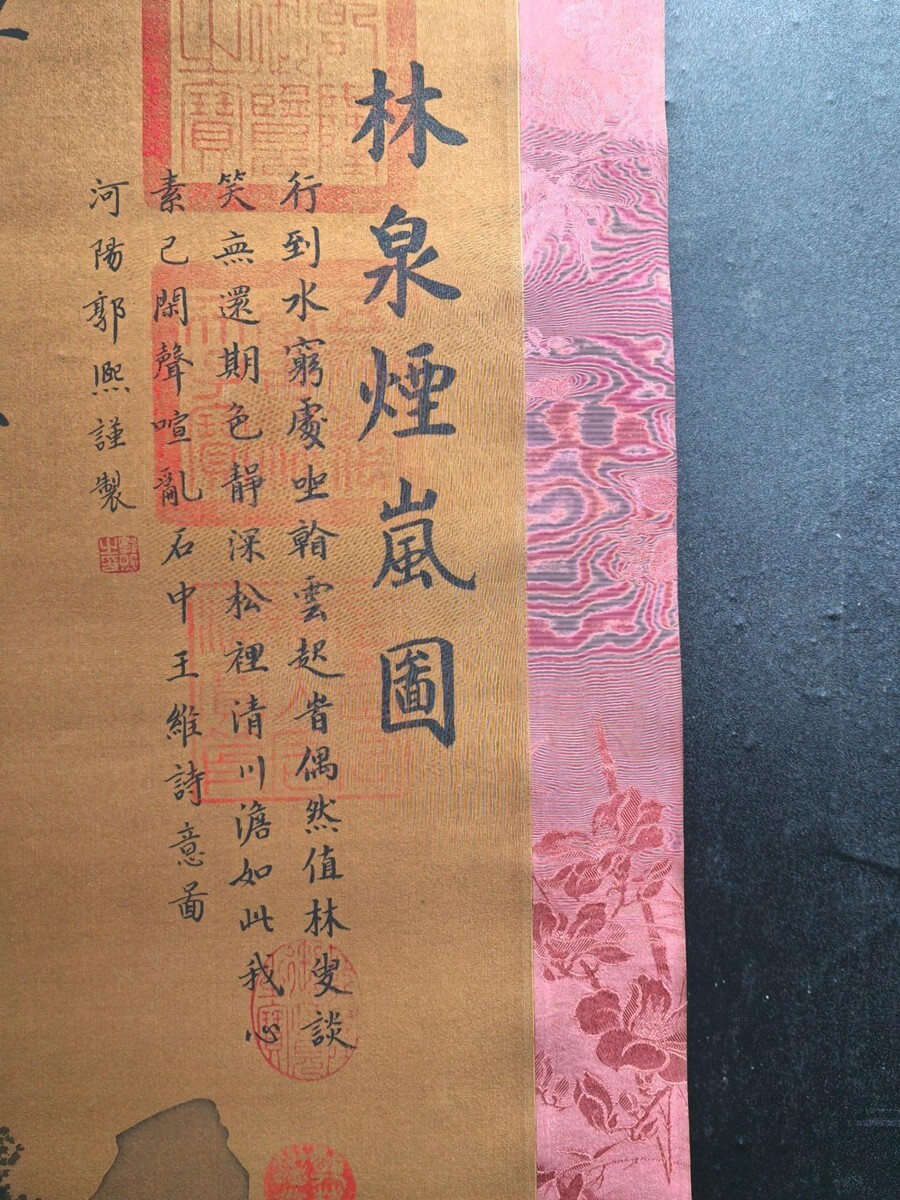 林泉煙嵐圖
行到水窮處坐看雲起旹偶然值林叟談
笑無還期色靜深松裡清川澹如此我心
素已閑聲喧亂石中王維詩意啚
河陽郭熙謹製
乾隆御覽之寶